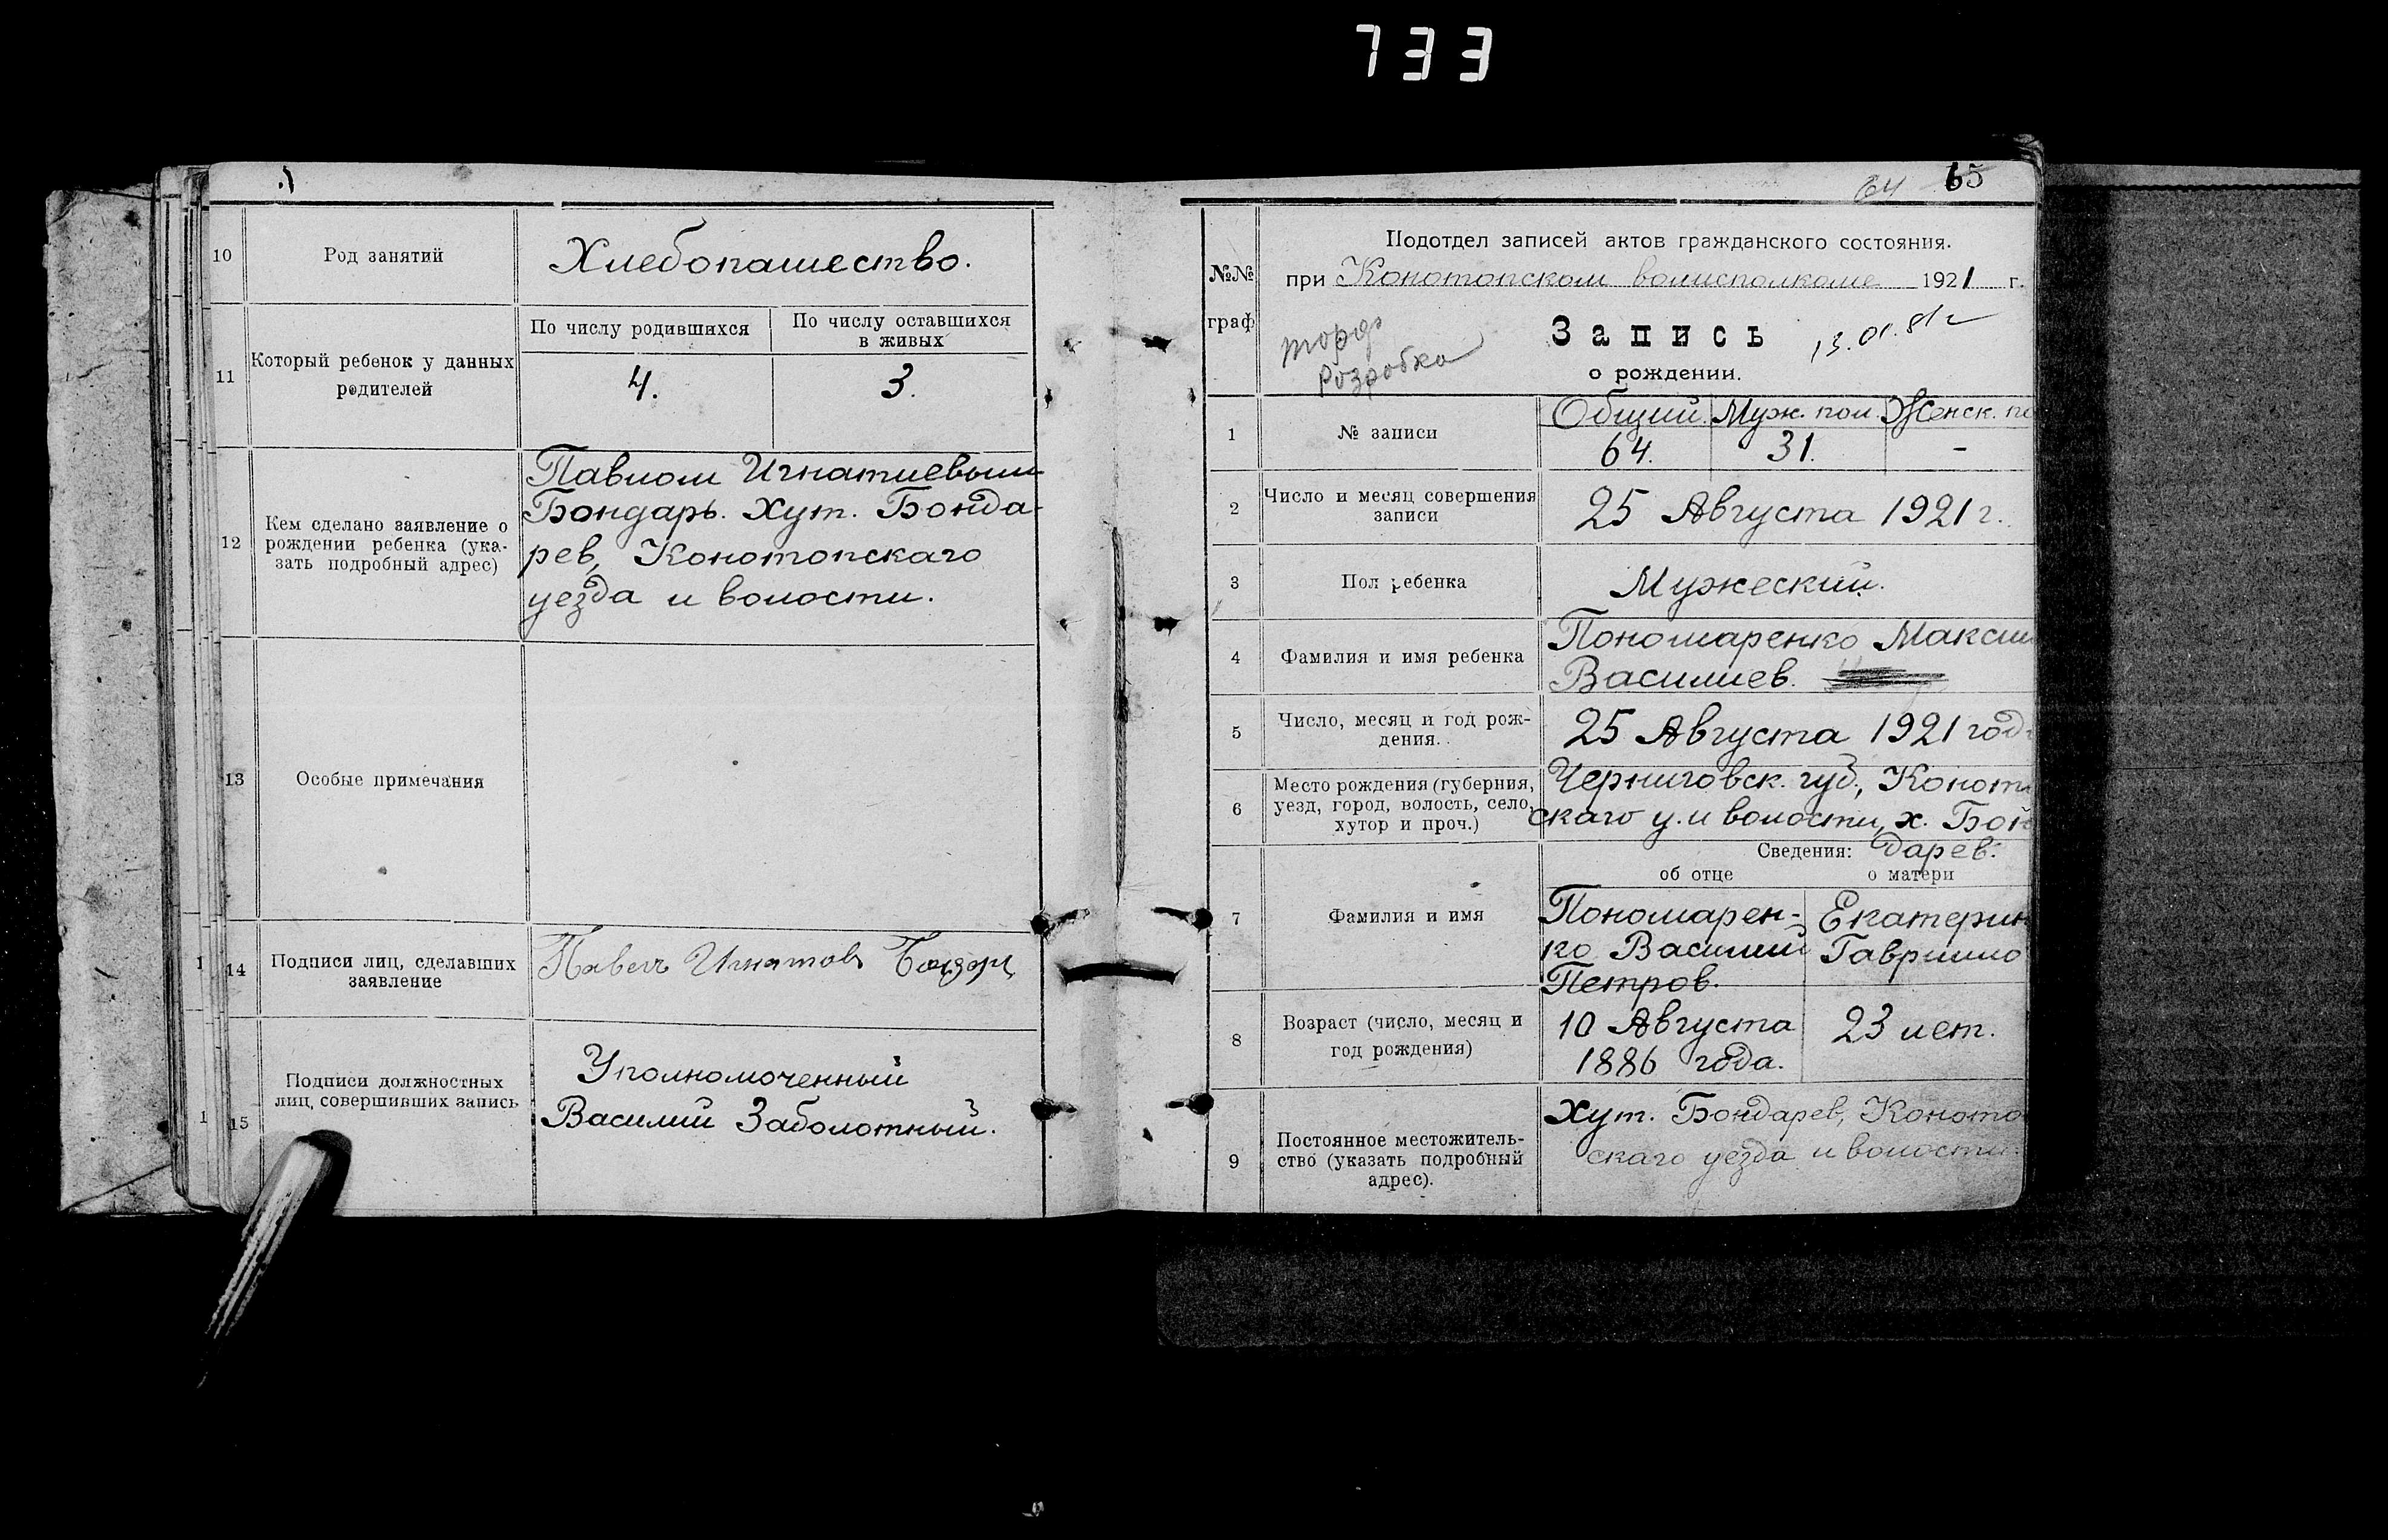 733
10
Род занятий
Хлебопашество.
11
Который ребенок у данных
родителей
По числу родившихся
По числу оставшихся
в живых
4.
3.
12
Кем сделано заявление о
рождении ребенка (ука-
зать подробный адрес)
Павлом Игнатиевым
Бондарь. Хут. Бонда-
рев, Конотопскаго
уезда и волости.
13
Особые примечания
1
14
Подписи лиц, сделавших
заявление
Павел Игнатов Бондарь
1
15
Подписи должностных
лиц, совершивших запись
Уполномоченный
Василий Заболотный.
64 65
№№
граф
Подотдел записей актов гражданского состояния.
при Конотопском волисполкоме 1921 г.
Запись
13.01.81г
о рождении.
1
№ записи
Общий. Муж. пол. Женск. по
64. 31. -
2
Число и месяц совершения
записи
25 Августа 1921 г.
3
Пол ребенка
Мужеский.
4
Фамилия и имя ребенка
Пономаренко Максим
Василиев.
5
Число, месяц и год рож-
дения.
25 Августа 1921 год
6
Место рождения (губерния,
уезд, город, волость, село,
хутор и проч.)
Черниговск. губ., Коното
скаго у. и волости, х. Бон
дарев.
Сведения:
об отце
о матери
7
Фамилия и имя
Пономарен-
ко Василий
Петров.
Екатерин
Гаврило
8
Возраст (число, месяц и
год рождения)
10 Августа
1886 года.
23 лет.
9
Постоянное местожитель-
ство (указать подробный
адрес).
Хут. Бондарев, Коното
скаго уезда и волости.